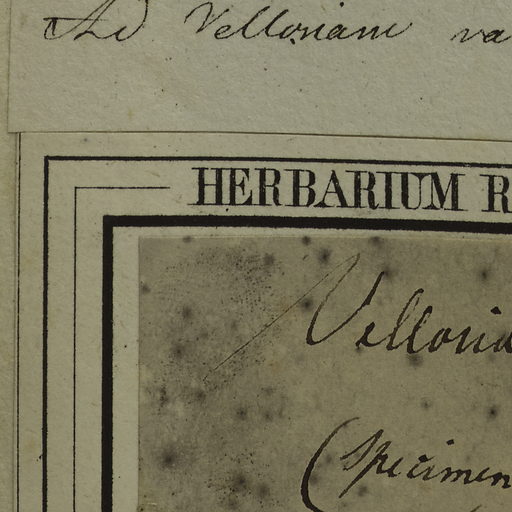 Ad Velloziam va
HERBARIUM R
Vellozia
(specimen